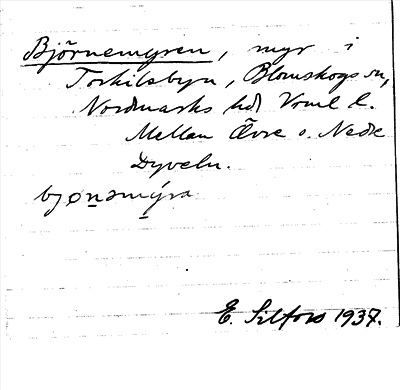 Björnemyren, myr i
Torkilsbyn, Blomskogs sn,
Nordmarks hd Vrml l.
Mellan Övre o. Nedre
Dyveln.
bjørnəmýra
E. Silfors 1937.